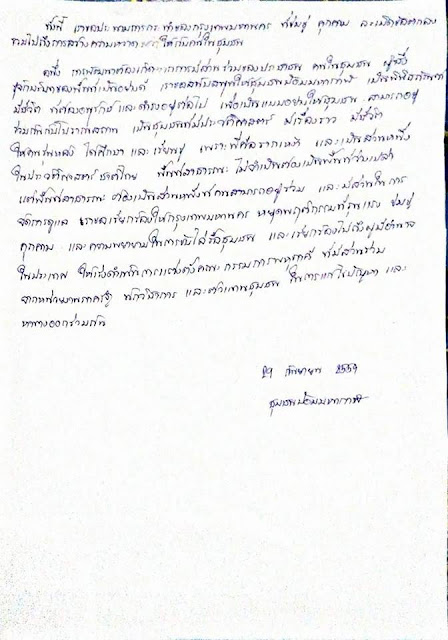 ทั้งนี้ เราขอประณามการกระทำของกรุงเทพมหานคร ที่ข่มขู่ คุกคาม
รวมไปถึงการสร้างความหวาดกลัวให้กับคนในชุมชน
อนึ่ง การพัฒนาต้องเกิดจากการมีส่วนร่วมของประชาชน คนในชุมชน ผู้ซึ่ง
เราขอสนับสนุนให้ชุมชนป้อมมหากาฬ เป็นพิพิธภัณฑ์
มีชีวิต ที่ควรอนุรักษ์ และดำรงอยู่ต่อไป เพื่อเป็นแบบอย่างให้ชุมชน สามารถอยู่
ร่วมกันกับโบราณสถาน เป็นชุมชนที่มีประวัติศาสตร์ มีเรื่องราว มีชีวิต
ให้คนรุ่นหลัง ได้ศึกษา และเรียนรู้ เพราะนี่คือรากเหง้า และเป็นส่วนหนึ่ง
ในประวัติศาสตร์ชาติไทย พื้นที่สาธารณะ ไม่จำเป็นต้องเป็นพื้นที่ว่างเปล่า
แต่พื้นที่สาธารณะ ต้องเป็นส่วนหนึ่งที่คนสามารถอยู่ร่วม และมีส่วนในการ
จัดการดูแล เราขอเรียกร้องให้กรุงเทพมหานคร หยุดพฤติกรรมที่รุนแรง ข่มขู่
คุกคาม และความพยายามในการขับไล่รื้อชุมชน และเรียกร้องไปถึงผู้มีอำนาจ
ในประเทศ ให้เร่งดำเนินการแต่งตั้งคณะกรรมการพหุภาคี ที่มีส่วนร่วม
จากหน่วยงานภาครัฐ นักวิชาการ และตัวแทนชุมชน ในการแก้ไขปัญหา และ
หาทางออกร่วมกัน
29 กันยายน 2559
ชุมชนป้อมมหากาฬ